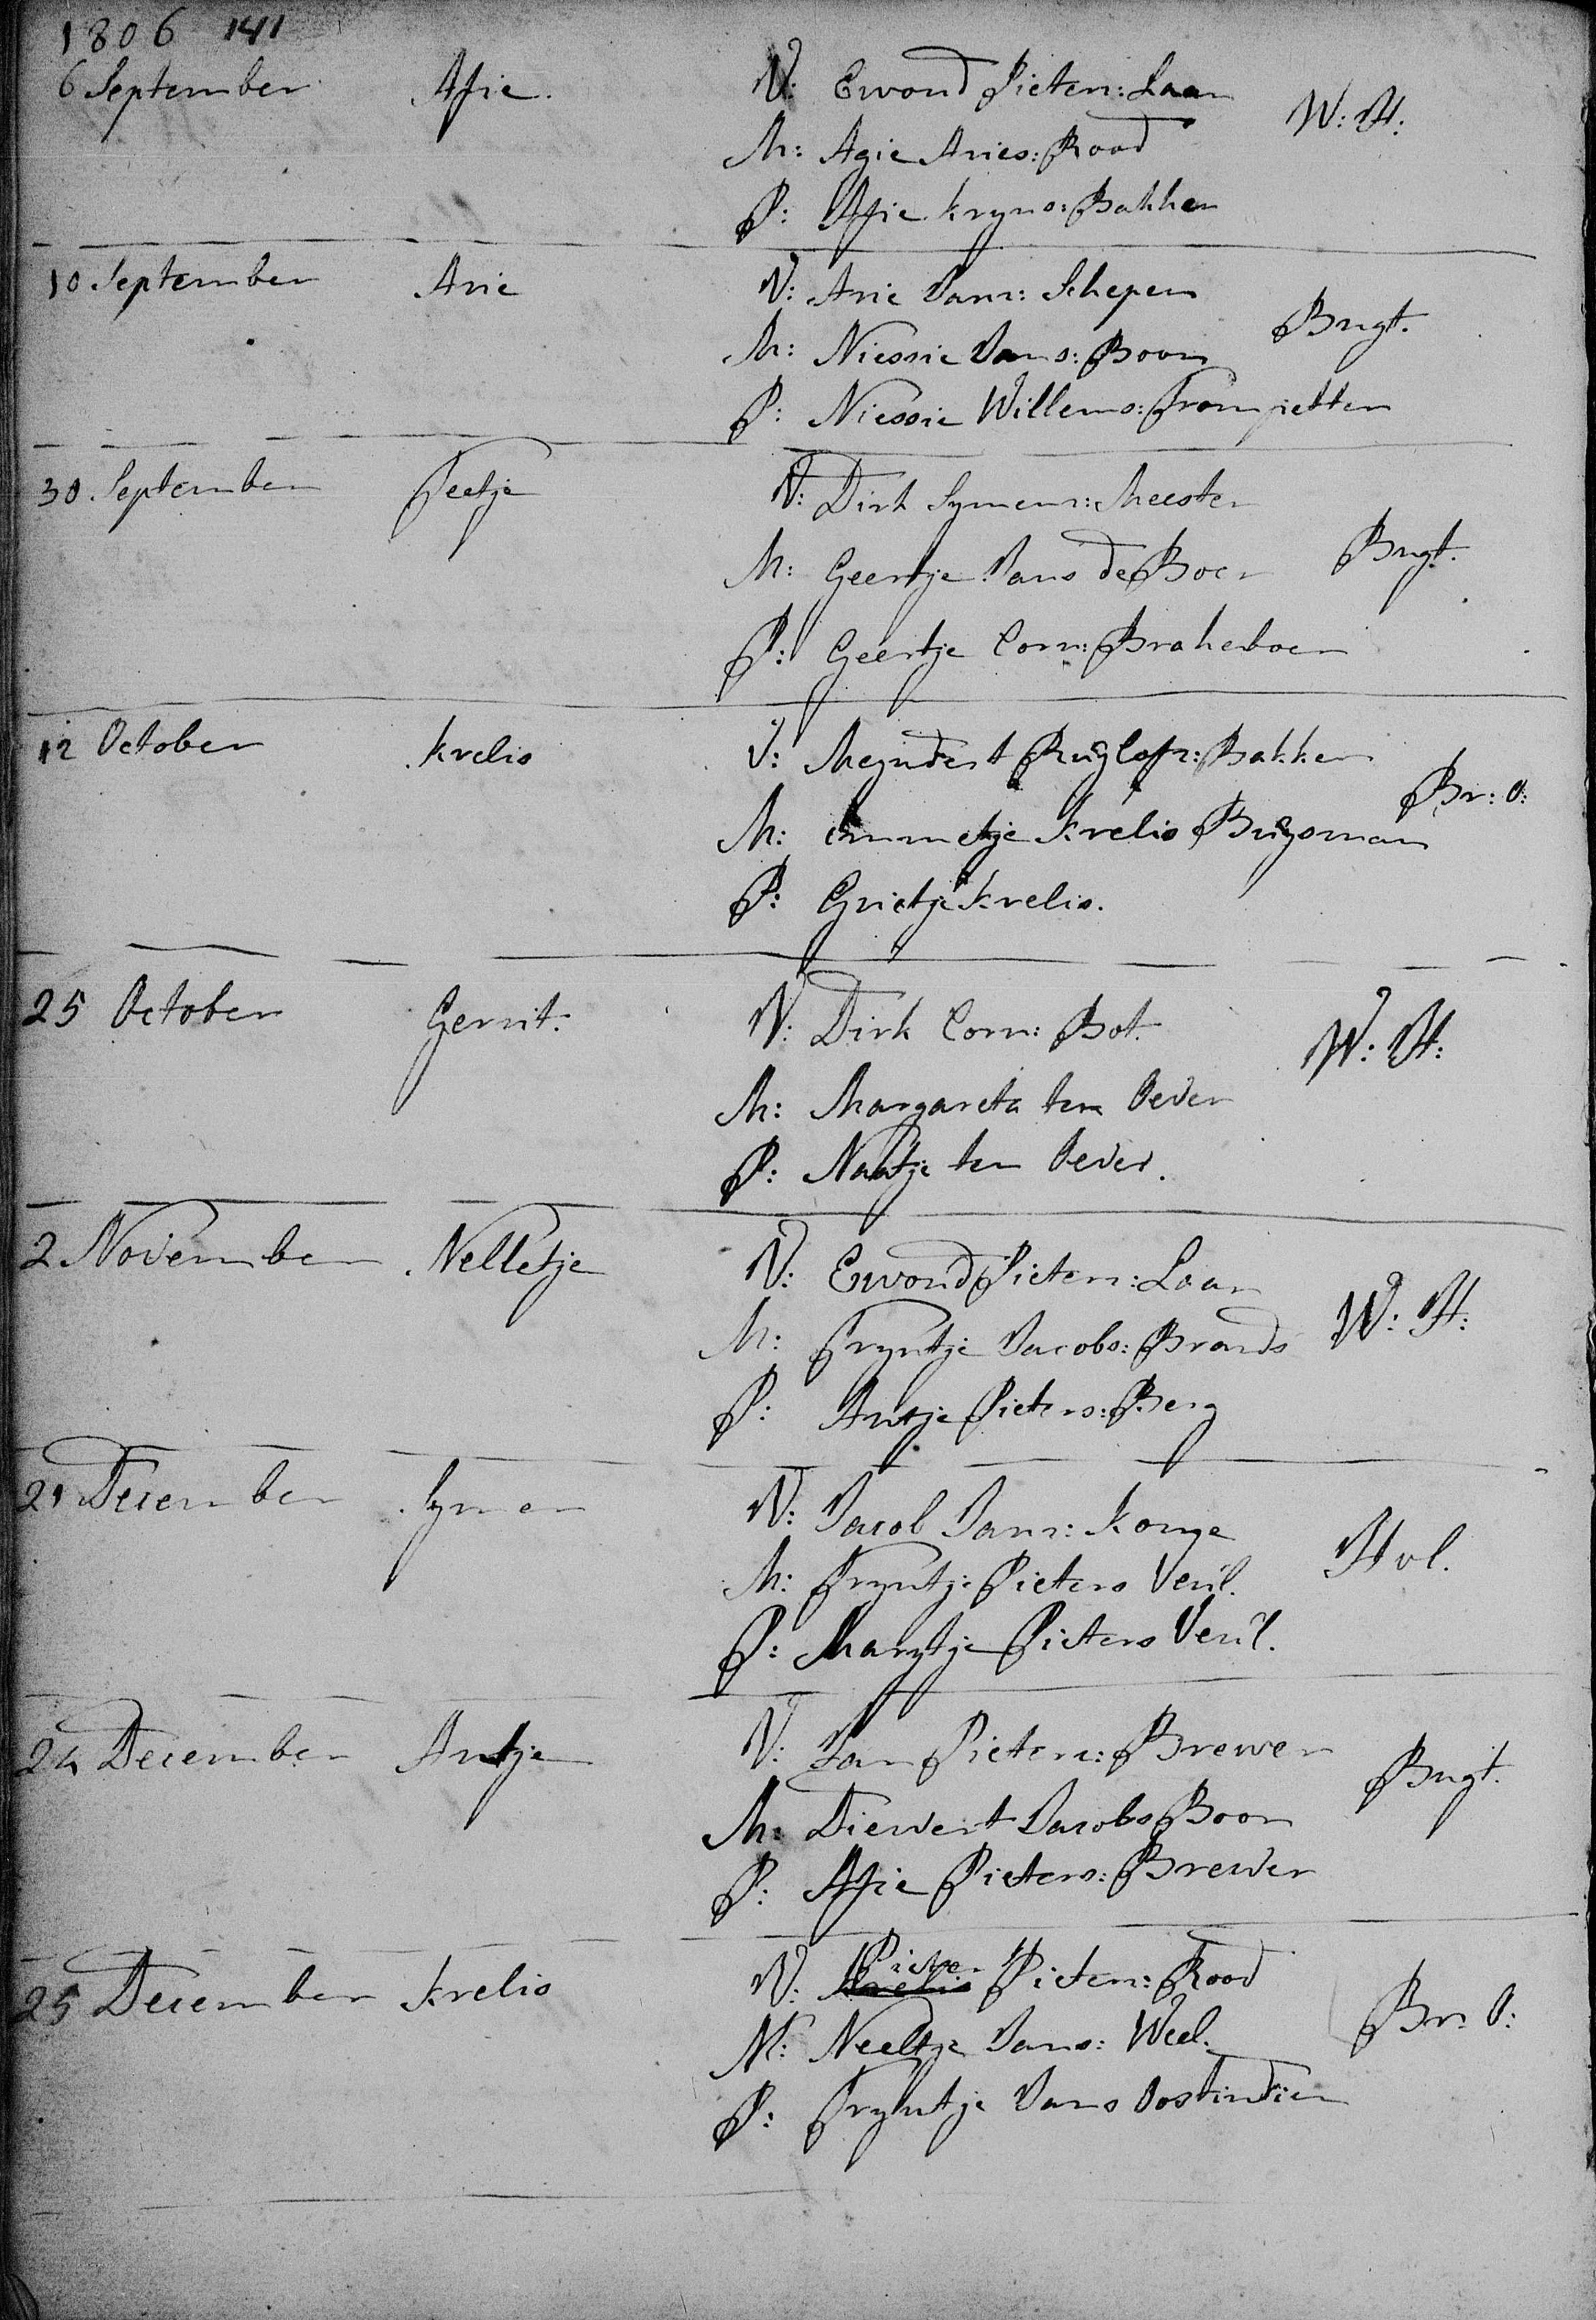 1806 141
6 September Afie. V: Ewoud Pietersz: Laan W: H:
M: Agie Aries: Rood
P: Afie Kryns: Bakker
10 September Arie V: Arie Jansz: Scheper Brugt.
M: Niessie Jans: Boon
P: Niessie Willems: Trompetter
30 September Peetje V: Dirk Symensz: Meester
M: Geertje Jans de Boer Brugt.
P: Geertje Corn: Brakeboer
12 October Krelis V: Meyndert Ruÿlofsz: Bakker Br: O:
M: Emmetje Krelis Buÿsman
P: Grietje Krelis.
25 October Gerrit. V: Dirk Corn: Bot. W: H:
M: Margareta ten Oever
P: Naatje ten Oever.
2 November Nelletje V: Ewoud Pietersz: Laan
M: Tryntje Jacobs: Brands W: H:
P: Antje Pieters: Berg
21 December Symen V: Jacob Jansz: Konge Hvl.
M: Tryntje Pieters Veul.
P: Marytje Pieters Veul.
24 December Antje V: Jan Pietersz: Brewer Brugt.
M: Diewert Jacobs Boon
P: Afie Pieters: Brewer
25 December Krelis V: Krelis Pieter Pietersz: Rood Br: O:
M: Neeltje Jans: Weel.
P: Tryntje Jans Oostindien